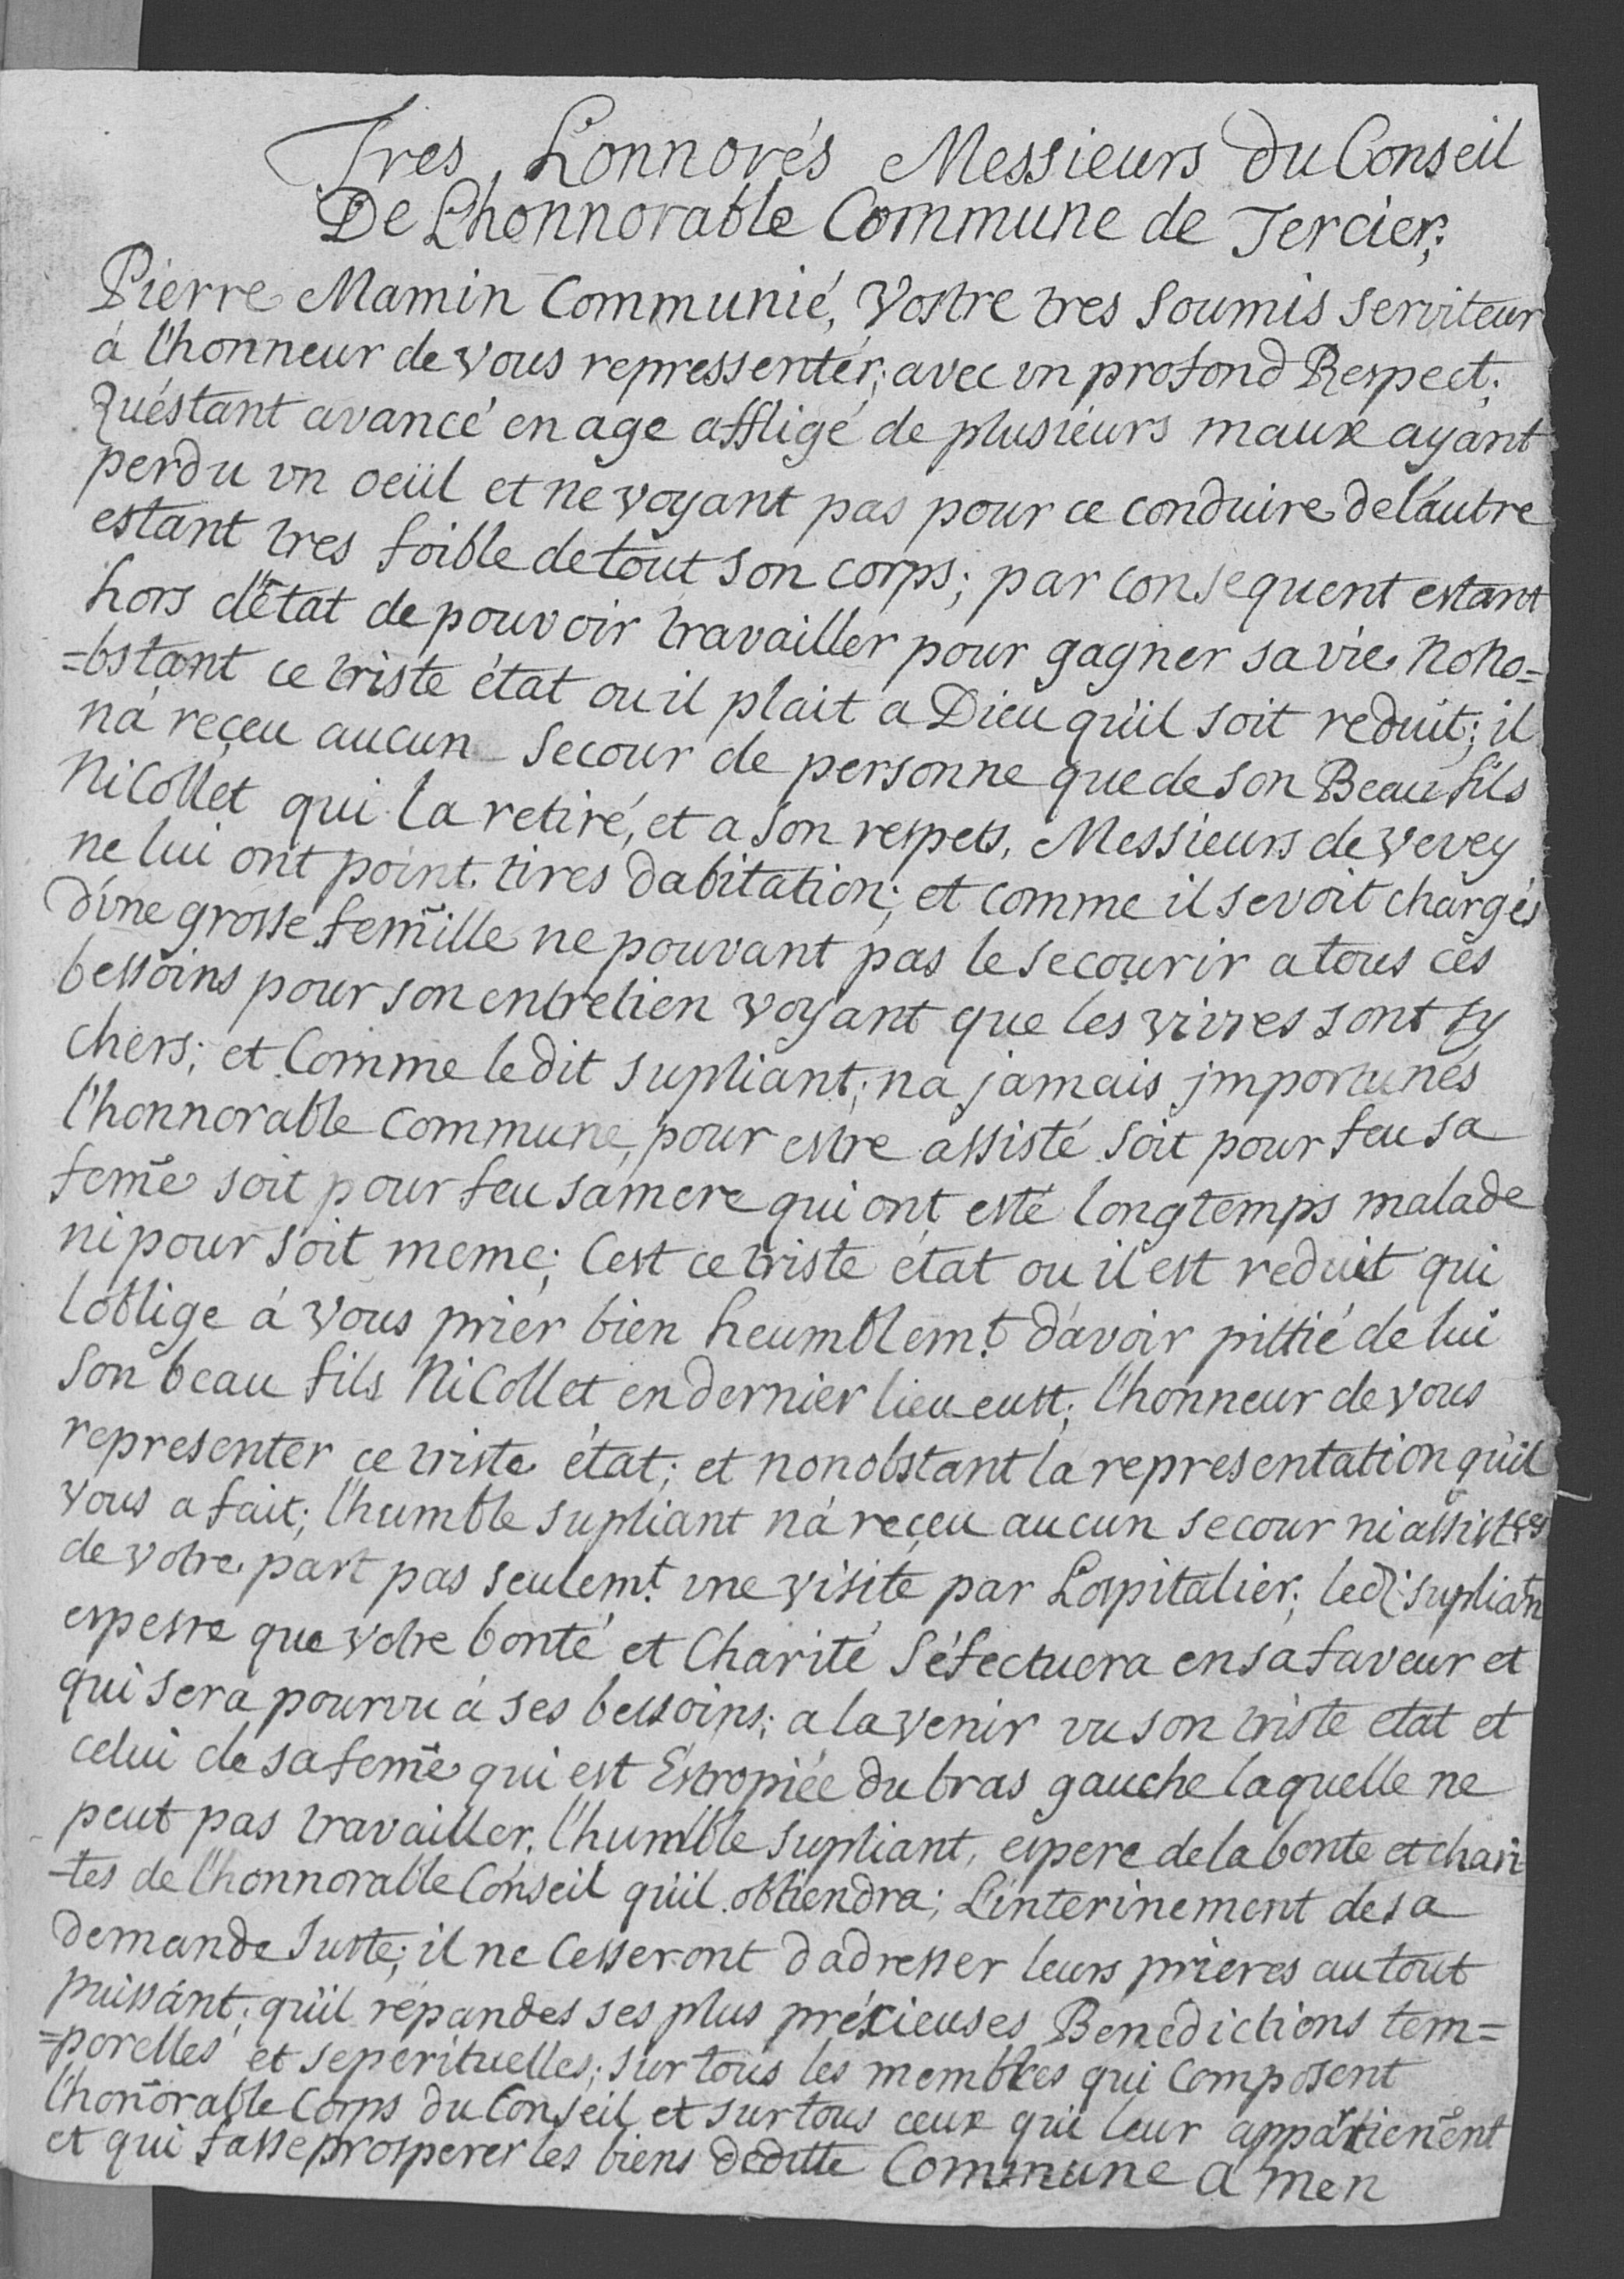 Tres Honnorés Messieurs Du Conseil
De L'honnorable Commune de Tercier;
Pierre Mamin Communié, Vostre tres soumis serviteur
á l'honneur de vous repressentér; avec un profond Respect;
Quéstant avancé en age affligé de plusieurs maux ayant
perdu un oeüil et ne voyant pas pour ce conduire de láutre
estant tres foible de tout son corps; par consequent estant
hors d'état de pouvoir travailler pour gagner sa vie, nono=
=bstant ce triste état ou il plait a Dieu qu'il soit reduit; il
ná reçeu aucun secour de personne que de son Beau fils
NiCollet qui la retiré, et a son respets, Messieurs de Vevey
ne lui ont point tires dabitation; et comme il se voit chargés
d'une grosse fem̃ille ne pouvant pas le secourir a tous ces
bessoins pour son entretien voyant que les vivres sont sy
chers; et Comme le dit supliant; na jamais jmportunés
l'honnorable Commune, pour estre assisté soit pour feu sa
fem̃e soit pour feu sa mere qui ont esté longtemps malade
ni pour soit meme; Cest ce triste état ou il est reduit qui
loblige á vous priér bien heumblemt. d'avoir pittié de lui
Son beau fils NiCollet en dernier lieu eust; l'honneur de vous
representer ce triste état; et nonobstant la representation qu'il
vous a fait; l'humble supliant ná reçeu aucun secour ni assistces
de votre part pas seulemt. une visite par Lospitalier; led: supliatn
espesre que votre bonté et Charité S'éfectuera en sa faveur et
qui sera pourvu á ses bessoins; a lavenir vu son triste etat et
celui de sa fem̃e qui est Éstropiée du bras gauche laquelle ne
peut pas travailler, l'humble supliant, espere de la bonte et chari
-tes de l'honnorable Conseil qu'il obtiendra; Linterinement de sa
demande Juste; il ne Cesseront d'adresser leurs prieres au tout
puissánt; qu'il répandes ses plus précieuses Benedictions tem=
=porelles et seperituelles; sur tous les membres qui Composent
l'hon̄orable Corps du Conseil et sur tous ceux qui leur appartienẽnt
et qui fasse prosperer les biens de ditte Commune Amen